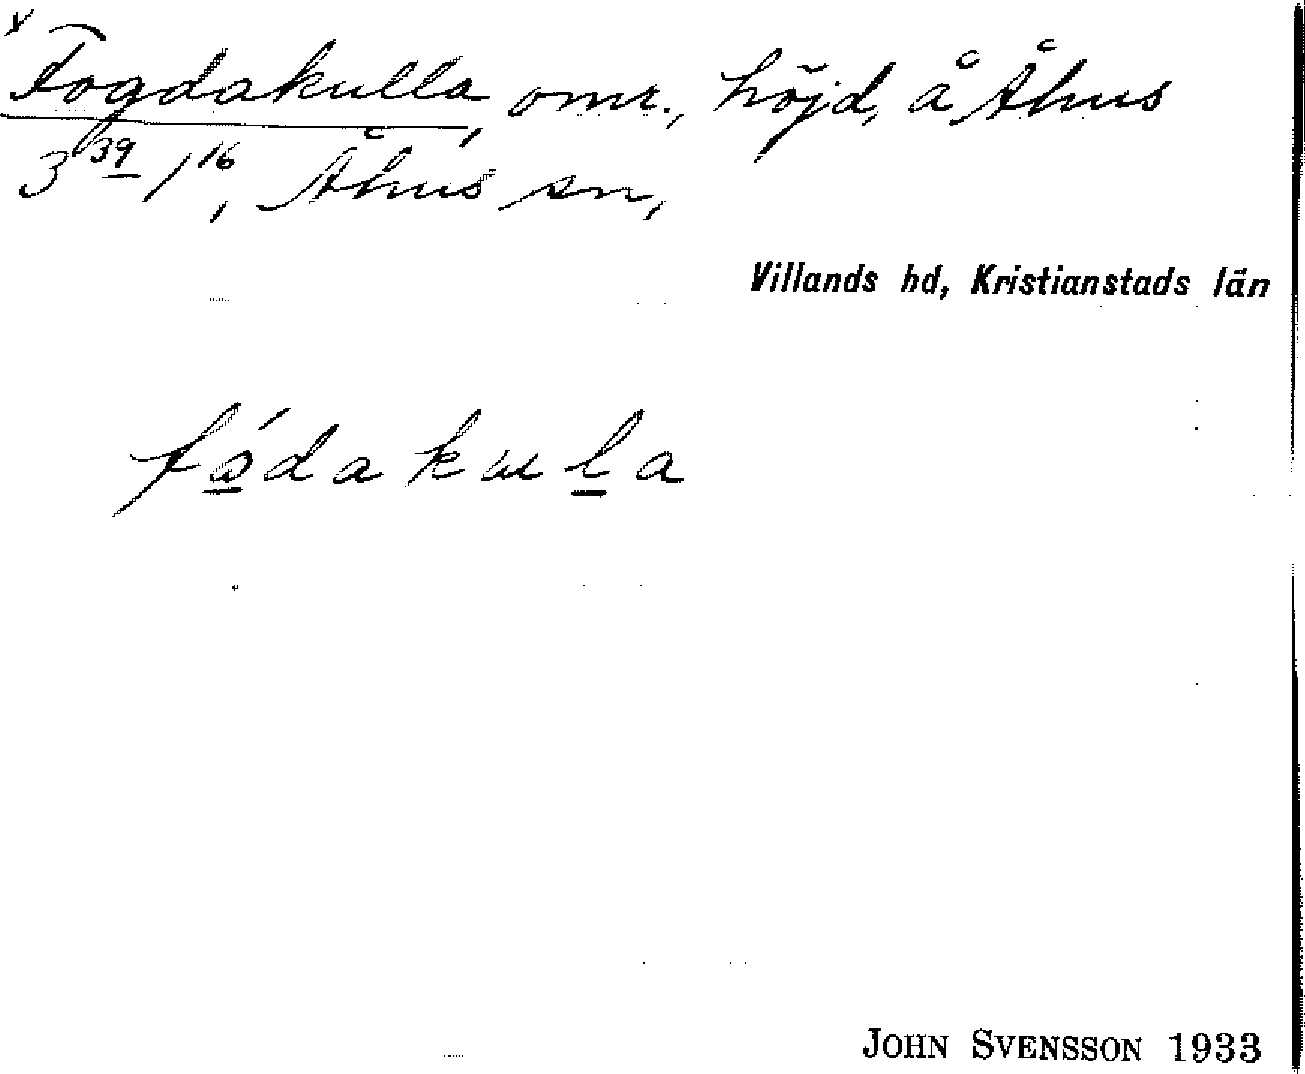 v
Fogdakulla, omr., höjd, å Åhus
3 39 / 16, Åhus sn,
Villands hd, Kristianstads län
fådakula
JOHN SVENSSON 1933